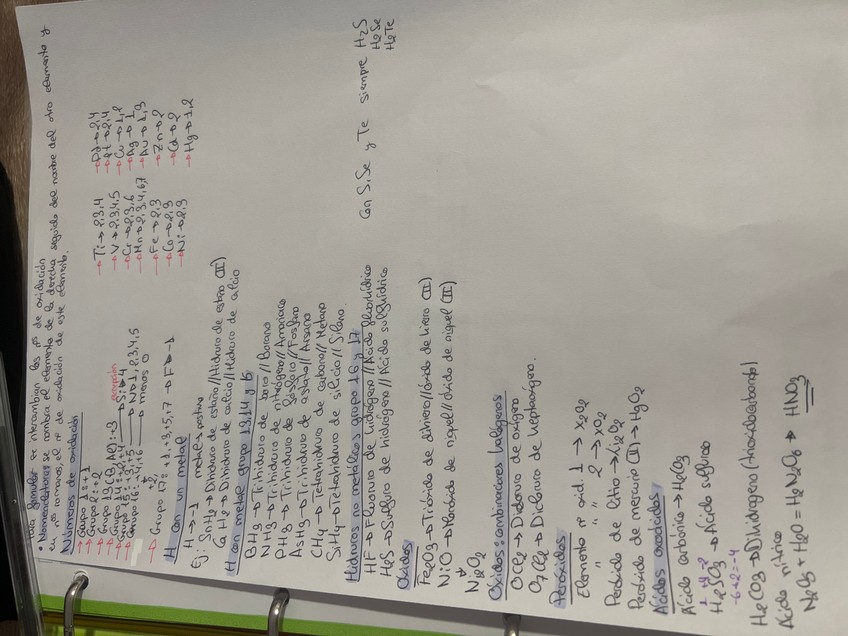 Para formular se intercambian los nºs de oxidación
• Nomenclatura: se nombra el elemento de la derecha seguido del nombre del otro elemento y
en nºs romanos, el nº de oxidación de este elemento.
Números de oxidación
→ Grupo 1: +1
→ Grupo 2: +2
→ Grupo 13 (B, Al): +3
→ Grupo 14: +2, +4 → Si → 4 excepción
→ Grupo 15: +3, +5 → N → 1, 2, 3, 4, 5
→ Grupo 16: -4, +6 → menos O
-2
→ Grupo 17: +1, +3, +5, +7 → F → -1
→ Ti → 2, 3, 4
→ V → 2, 3, 4, 5
→ Cr → 2, 3, 6
→ Mn → 2, 3, 4, 6, 7
→ Fe → 2, 3
→ Co → 2, 3
→ Ni → 2, 3
→ Pd → 2, 4
→ Pt → 2, 4
→ Cu → 1, 2
→ Ag → 1
→ Au → 1, 3
→ Zn → 2
→ Cd → 2
→ Hg → 1, 2
H con un metal
H → -1 metal es positivo
Ej: SnH2 → Dihidruro de estaño // Hidruro de estaño (II)
CaH2 → Dihidruro de calcio // Hidruro de calcio
H con metale grupo 13, 14 y 15
BH3 → Trihidruro de boro // Borano
NH3 → Trihidruro de nitrógeno // Amoniaco
PH3 → Trihidruro de fósforo // Fosfano
AsH3 → Trihidruro de // Arsano
CH4 → Tetrahidruro de carbono // Metano
SiH4 → Tetrahidruro de silicio // Silano.
Hidruros no metálicos grupo 16 y 17
HF → Fluoruro de hidrógeno // Ácido fluorhídrico
H2S → Sulfuro de hidrógeno // Ácido sulfhídrico
Con S, Se y Te siempre H2S
H2Se
H2Te
Óxidos
Fe2O3 → Trióxido de dihierro // Óxido de hierro (III)
NiO → Monóxido de níquel // Óxido de níquel (II)
↓
Ni2O2
Óxidos: combinaciones halógenos
OCl2 → Dicloruro de oxígeno
O7Cl2 → Dicloruro de heptaoxígeno.
Peróxidos
Elemento nº oxid. 1 → X2O2
" " " 2 → XO2
Peróxido de litio → Li2O2
Peróxido de mercurio (II) → HgO2
Ácidos oxoácidos
Ácido carbónico → H2CO3
H2SO3 → Ácido sulfuroso
-6+2=-4
H2CO3 → Dihidrogeno (trioxidocarbonato)
Ácido nítrico
N2O5 + H2O = H2N2O6 → HNO3